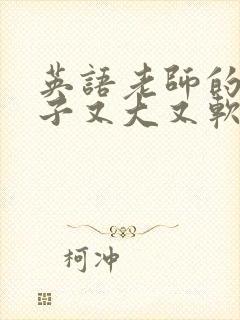 英語老師的
子又大又軟
柯冲